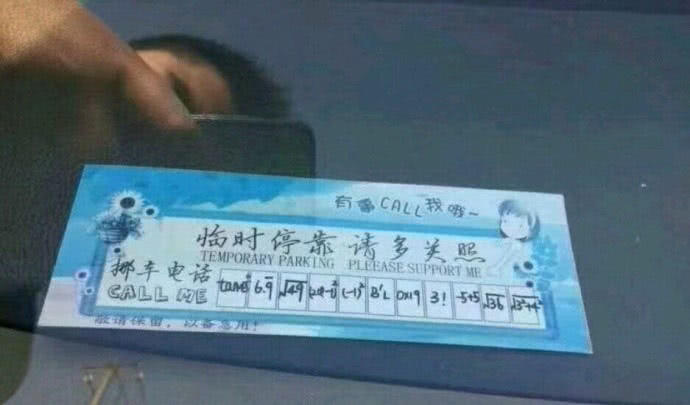 有事CALL我哦~
临时停靠 请多关照
TEMPORARY PARKING PLEEASE SUPPORT ME
挪车电话
CALL ME 6.9 √49 (-1)² 0x19 3! -5+5 √36 √3²+4²
敬请保留，以备急用！